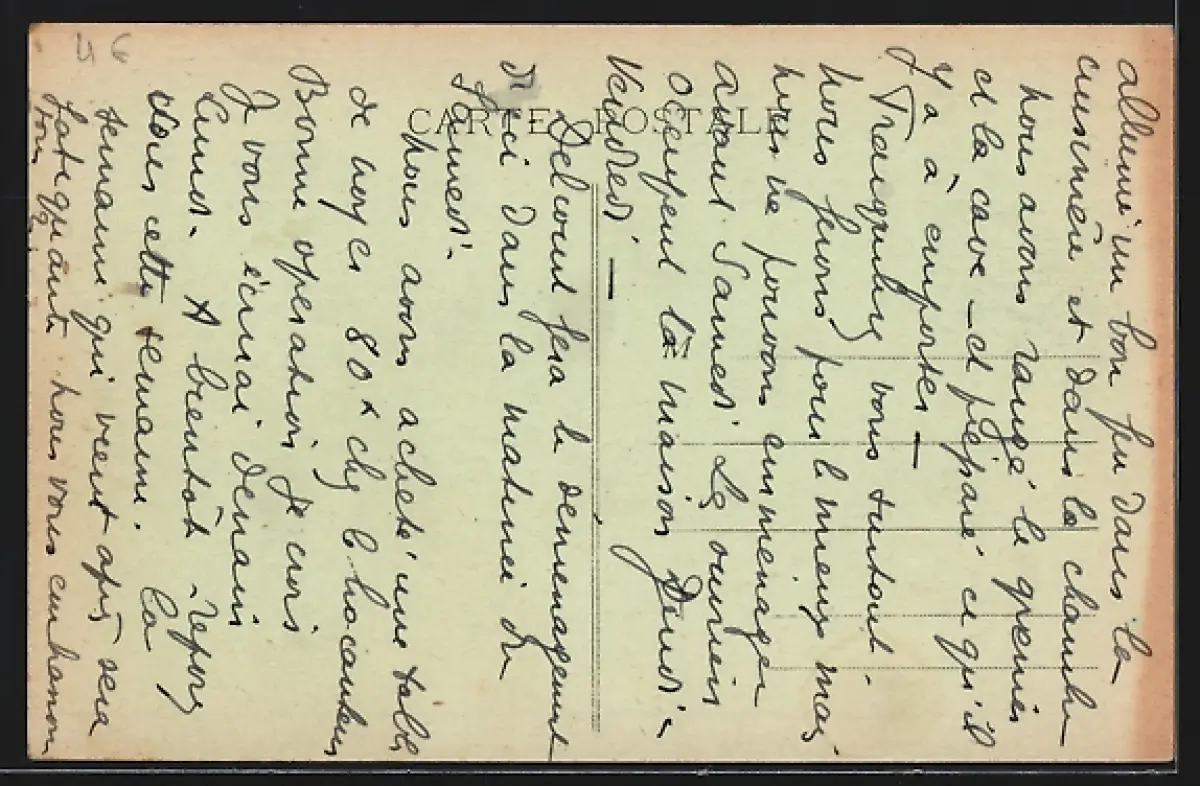 allumé un bon feu dans la
cuisinière et dans la chambre
nous avons rangé le grenier
et la cave — et séparé ce qu'il
y a à emporter —
Tranquillez vous surtout.
nous ferons pour le mieux mais
nous ne pouvons emménager
avant Samedi Les ouvriers
occupent la maison Jeudi &
Vendredi —
Delcourt fera le demenagement
d'ici dans la matinée du
Samedi.
nous avons acheté une table
de noyer 80 x chez le brocanteur
Bonne operation je crois
Je vous écrirai demain
Lundi. A bientôt repos
vous cette semaine. La
semaine qui vient après sera
fatiguante nous vous embrassons
tous
CARTE POSTALE
46